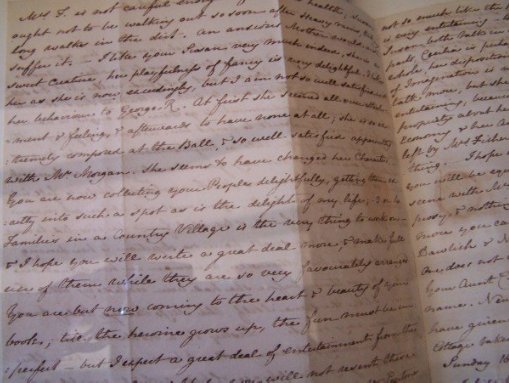 Mrs F. is not careful enough of health;
ought not to be walking out so soon after Heavy rains,
long walks in the dirt. An anxious Mother would not
suffer it. — I like your Susan very much indeed, she is a
sweet creature, her playfulness of fancy is very delightful.
her as she is now exceedingly, but I am not so well satisfied with
her behaviour to George R. At first she seemed all over attach-
-ment & feeling, & afterwards to have none at all; she is so ex
:tremely composed at the Ball, & so well satisfied apparently
with Mr Morgan. She seems to have changed her Character.
You are now collecting your People delightfully, getting them ex
:actly into such a spot as is the delight of my life; 3 or 4
Families in a Country Village is the very thing to work on
& I hope you will write a great deal more, & make full
use of them while they are so very favourably arranged
You are but now coming to the heart & beauty of your
book; till the heroine grows up, the fun must be im
:perfect — but I expect a great deal of entertainment from the
will not resent these
not so much like the
is very entertaining
Susan both talk in
part, Cecilia is perha
whole her disposition
of Imagination is
talk more, but she
entertaining, because
propriety about he
Economy & her
left by Mrs Fisher
thing. — I hope
you will be equ
scene with Mr
& nothing
now you can
does not
your Aunt C
name. New
have given
Cottage taken
Sunday 18